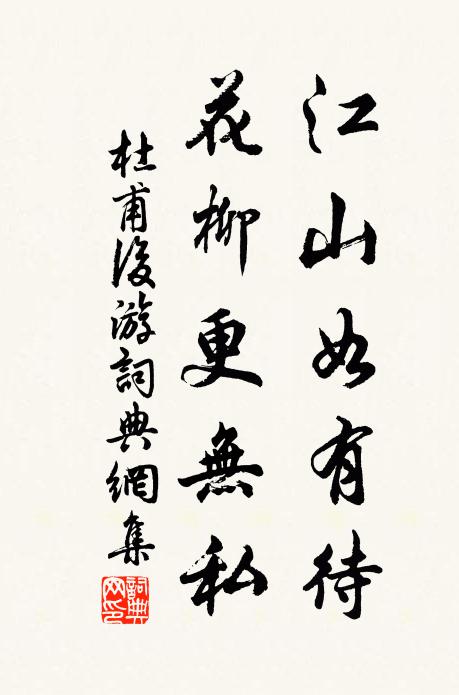 江山如有待
花柳更無私
杜甫後游詞典網集
詞典網印